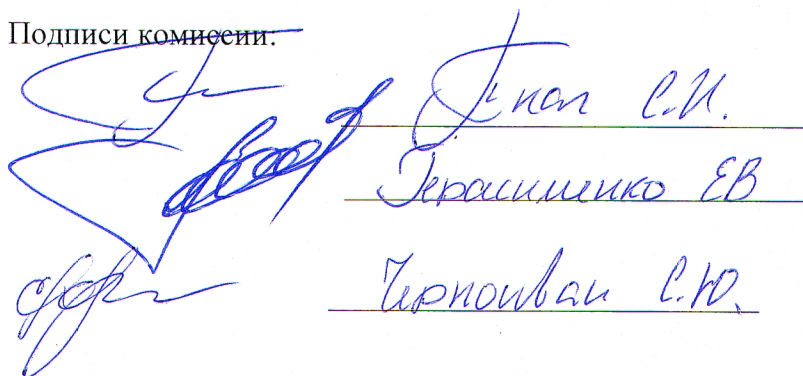 Подписи комиссии:
С.И.
Герасименко ЕВ
Черноиван С.Ю.